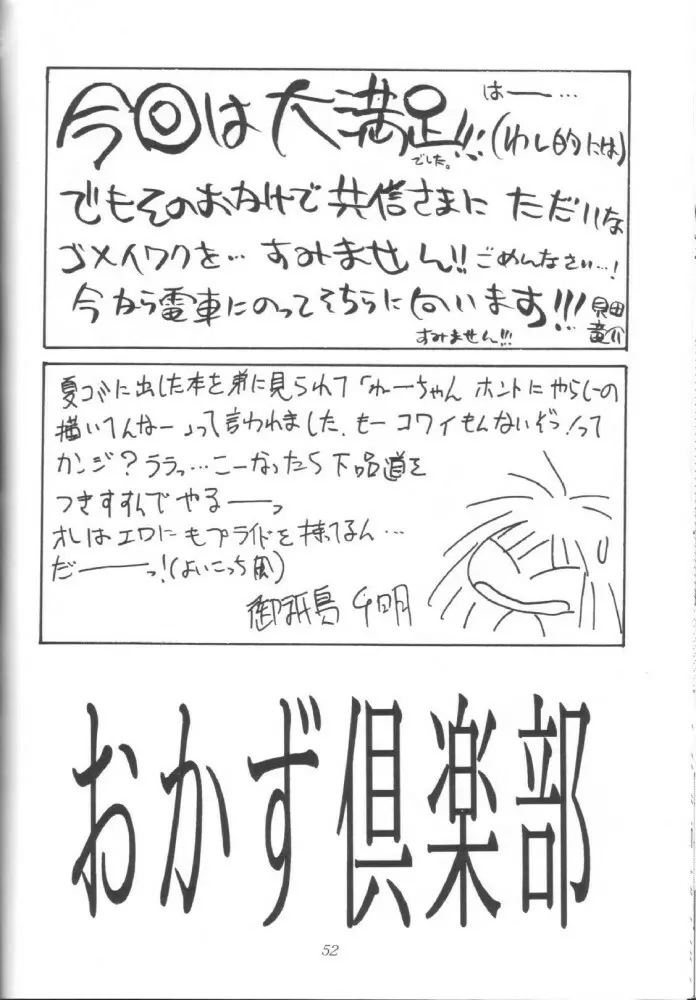 はー…
今回は大満足!!!(わし的には)
でした。
でもそのおかげで共信さまに ただいな
ゴメイワクを… すみません!! ごめんなさい…!
今から電車にのってそちらに向います!!!
すみません!!!
貝田
竜介
夏コミに出した本を弟に見られて「ねーちゃん ホントにやらしーの
描いてんなー」って言われました。もー コワイもんないぞっ!って
カンジ?ララっ…こーなったら下品道を
つきすすんでやるーーっ
オレはエロにもプライドを持ってるん…
だーーーっ!(よいこっち風)
御祇島 千明
おかず倶楽部
52